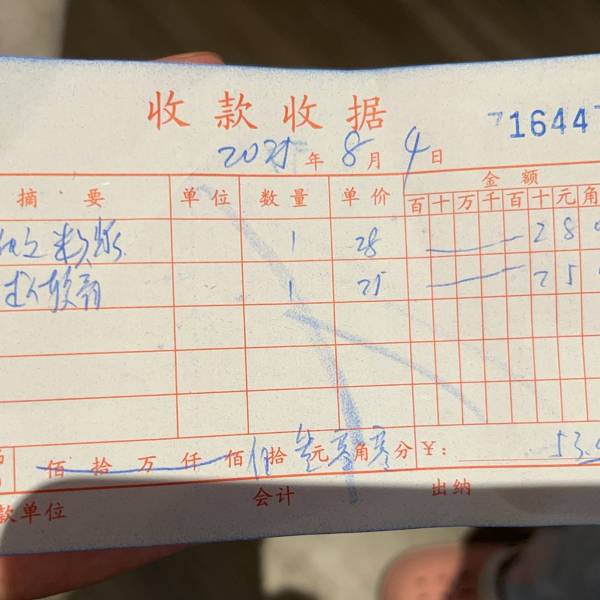 收款收据
71644
2025年8月4日
摘要 单位 数量 单价 金额
百十万千百十元角
1 28 28
1 25 25
佰拾万仟佰 伍拾叁元零角零分 ¥: 53.
款单位 会计 出纳